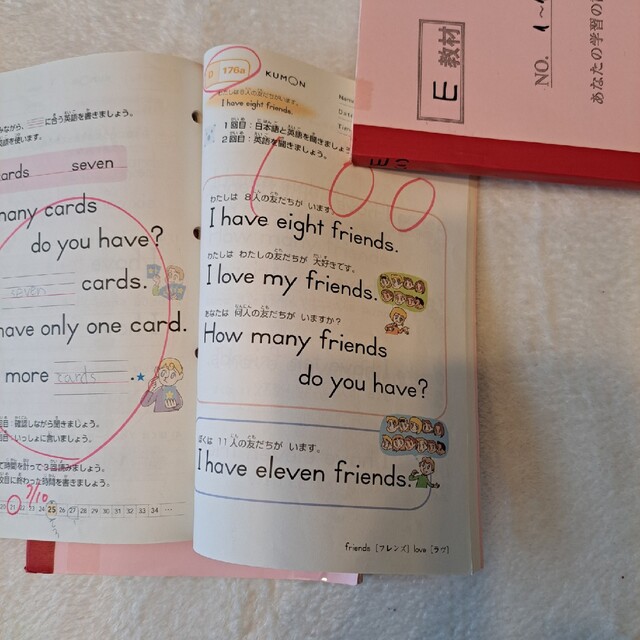 みながら、に合う英語を書きましょう。
英語を使います。
cards seven
many cards
do you have?
seven cards.
have only one card.
more cards.★
確認しながら聞きましょう。
いっしょに言いましょう。
て時間を計って3回読みましょう。
数目に終わった時間を書きましょう。
7/10
20 21 22 23 24 25 26 27 28 29 30 31 32 33 34 …
D 176a
KUMON
わたしは8人の友だちがいます。
I have eight friends.
1回目：日本語と英語を聞きましょう
2回目：英語を聞きましょう。
100
わたしは 8人の友だちが います。
I have eight friends.
わたしは わたしの友だちが 大好きです。
I love my friends.
あなたは 何人の友だちが いますか？
How many friends
do you have?
ぼくは 11人の友だちが います。
I have eleven friends.
friends［フレンズ］ love［ラヴ］
E 教材
NO. 1～
あなたの学習の